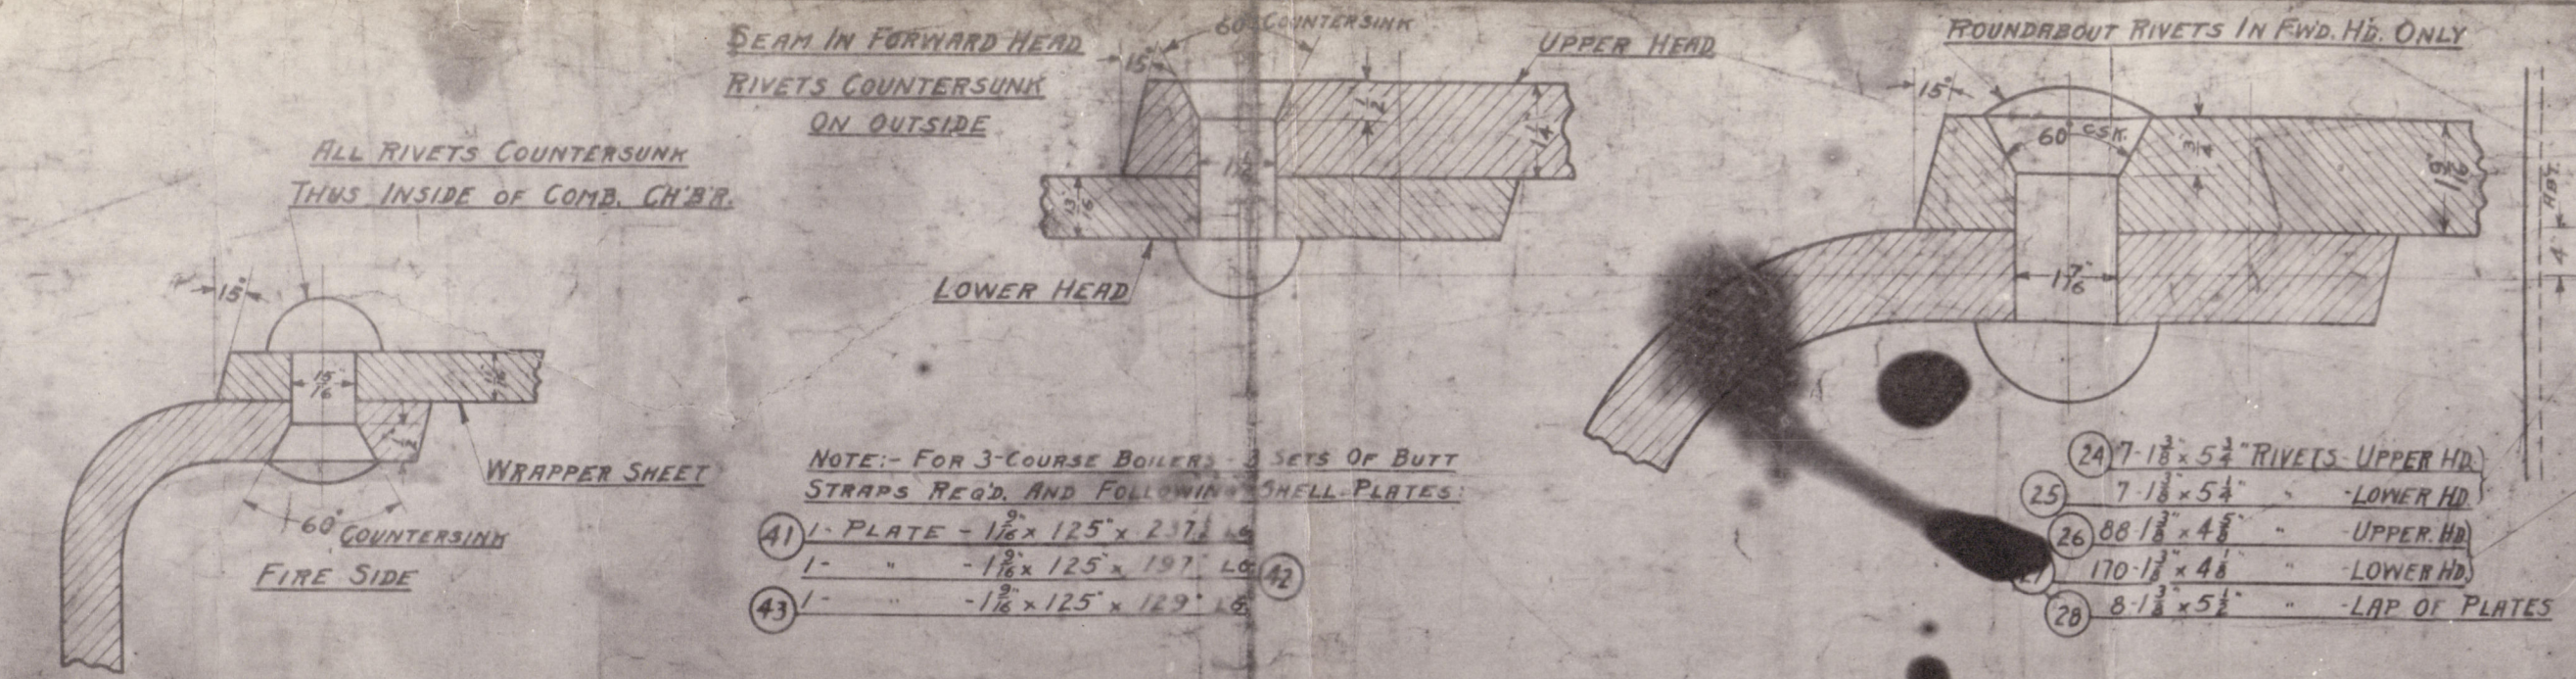 ALL RIVETS COUNTERSUNK
THUS INSIDE OF COMB. CH'B'R.
15°
15/16
1/2
WRAPPER SHEET
60° COUNTERSINK
FIRE SIDE
SEAM IN FORWARD HEAD
RIVETS COUNTERSUNK
ON OUTSIDE
60° COUNTERSINK
15°
UPPER HEAD
1/2
1 1/4
13/16
LOWER HEAD
NOTE:- FOR 3-COURSE BOILERS - 3 SETS OF BUTT
STRAPS REQ'D. AND FOLLOWING SHELL PLATES:
41 1- PLATE - 1 9/16" x 125" x 237 LG
1- " - 1 9/16" x 125" x 197" LG 42
43 1- " - 1 9/16" x 125" x 129" LG
ROUNDABOUT RIVETS IN FW'D. H'D. ONLY
15°
60° CSK.
3/4
1 9/16"
1 7/16"
ABT.
4"
24 7-1 3/8" x 5 3/4" RIVETS - UPPER HD.
25 7-1 3/8" x 5 1/4" " -LOWER HD.
26 88-1 3/8" x 4 5/8" " -UPPER. HD.
170-1 3/8" x 4 1/8" " -LOWER HD.
28 8-1 3/8" x 5 1/2" " -LAP OF PLATES